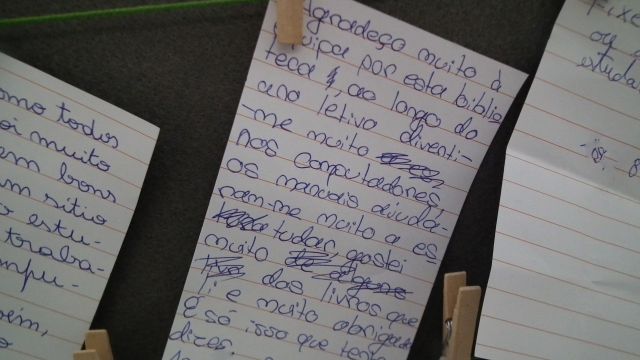 omo todos
oi muito
em bons
m sitio
o estu-
traba-
mpu-
eim,
Agradeço muito à
equipa por esta biblio
teca, ao longo do
ano letivo diverti-
-me muito
nos computadores,
os manuais ajuda-
ram-me muito a es
tudar, gostei
muito
dos livros que
li e muito obrigad
É só isso que tenho
dizer.
Fixe
ou
estuda